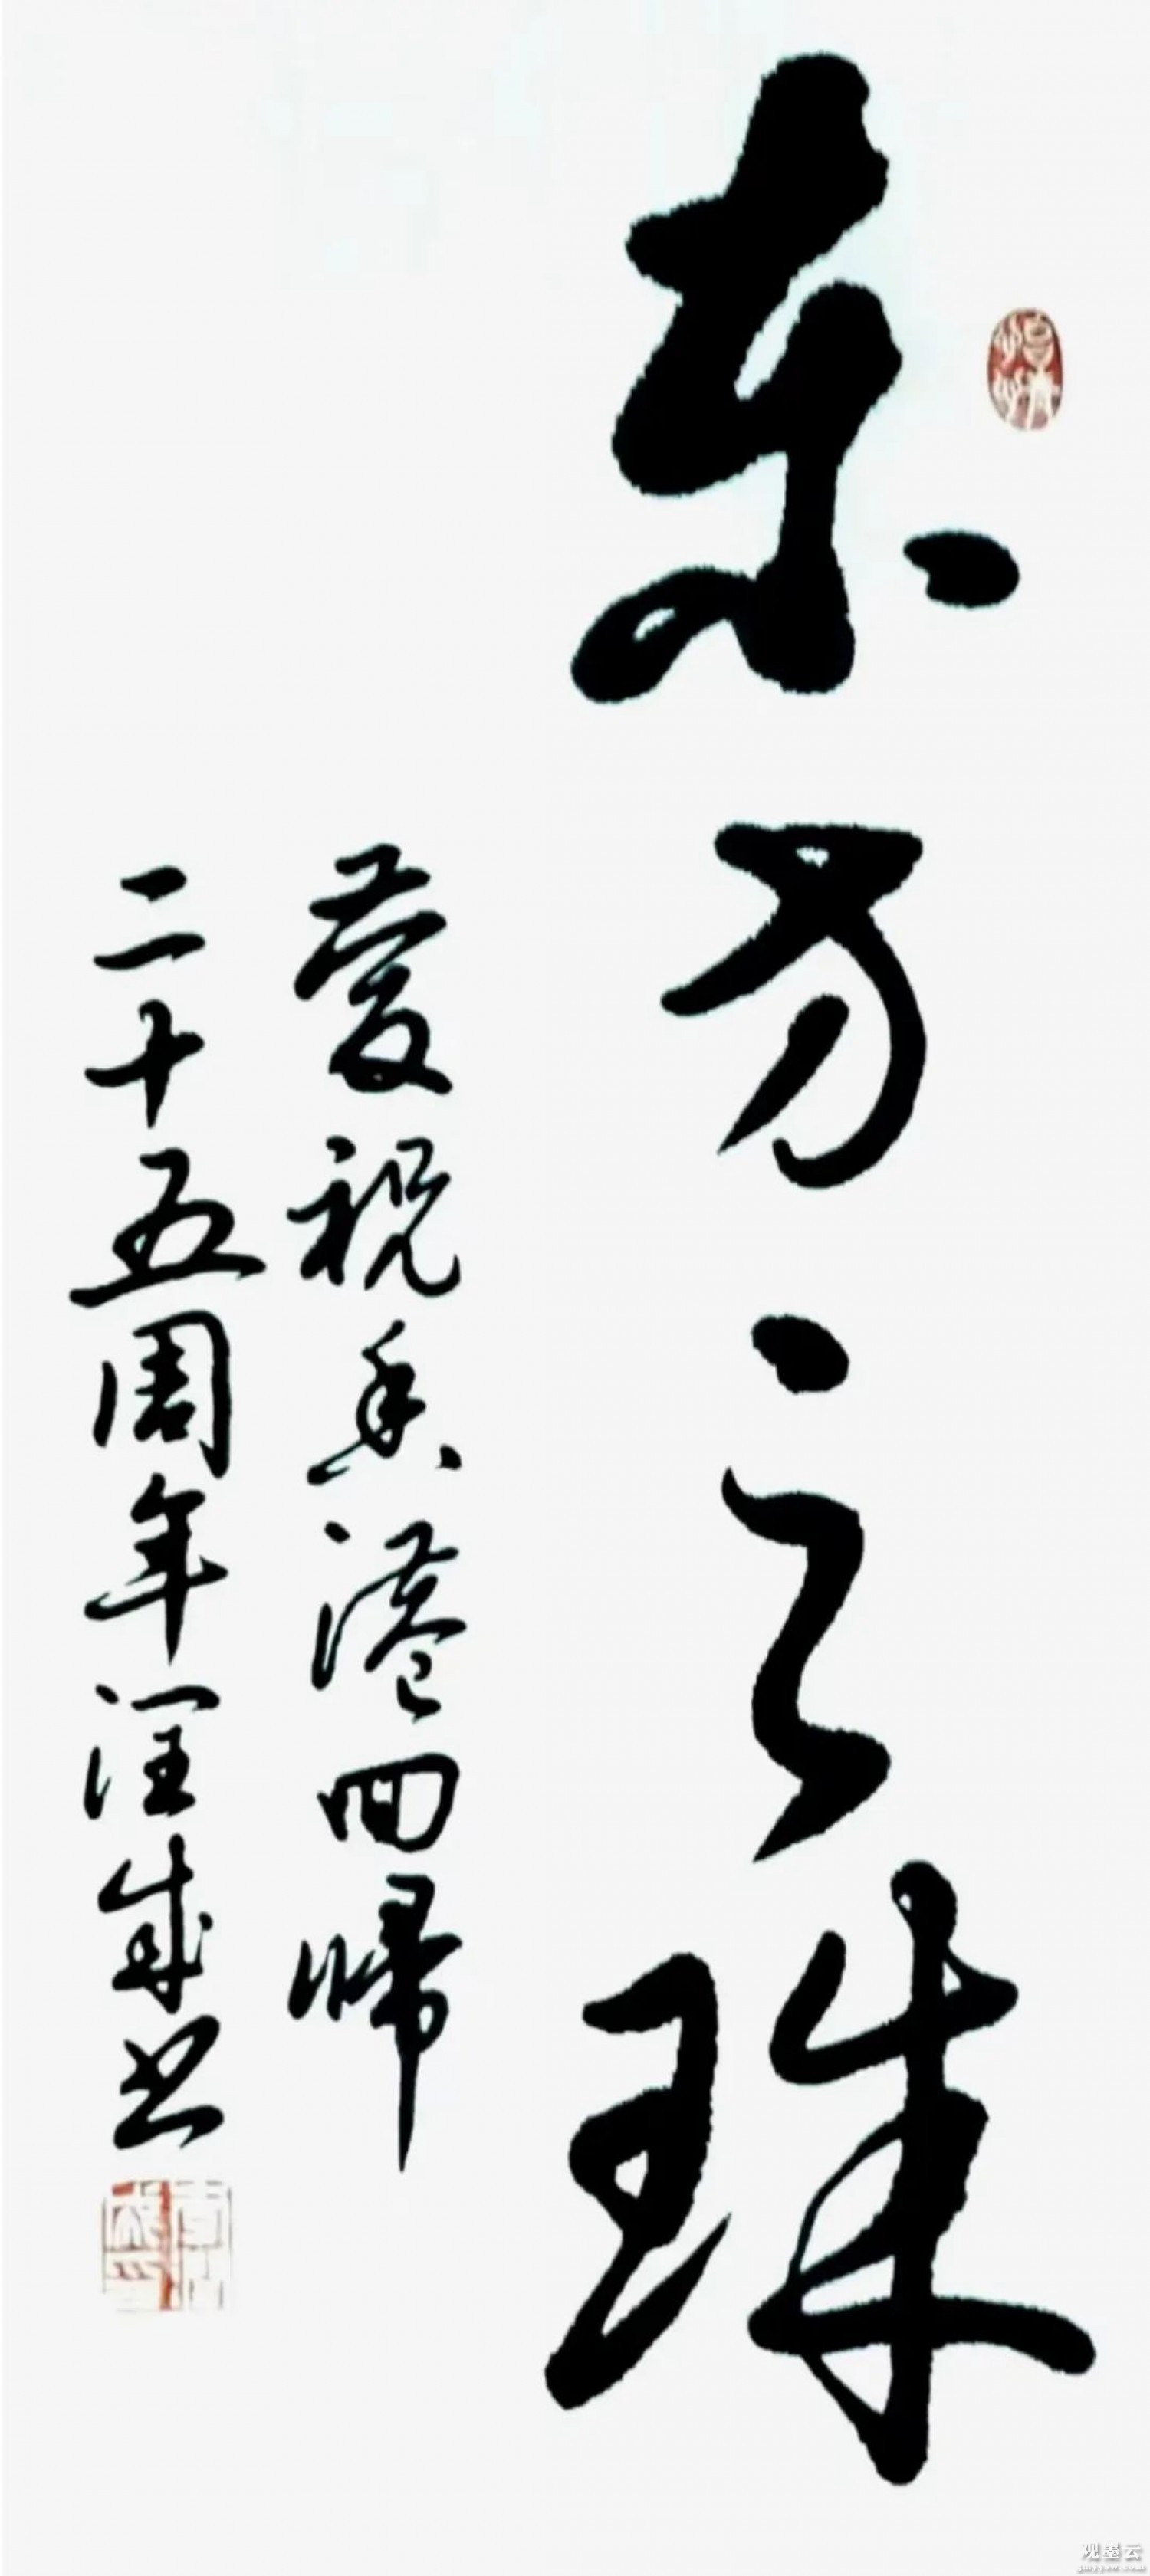 东方之珠
慶祝香港回歸
二十五周年润成书
观墨云